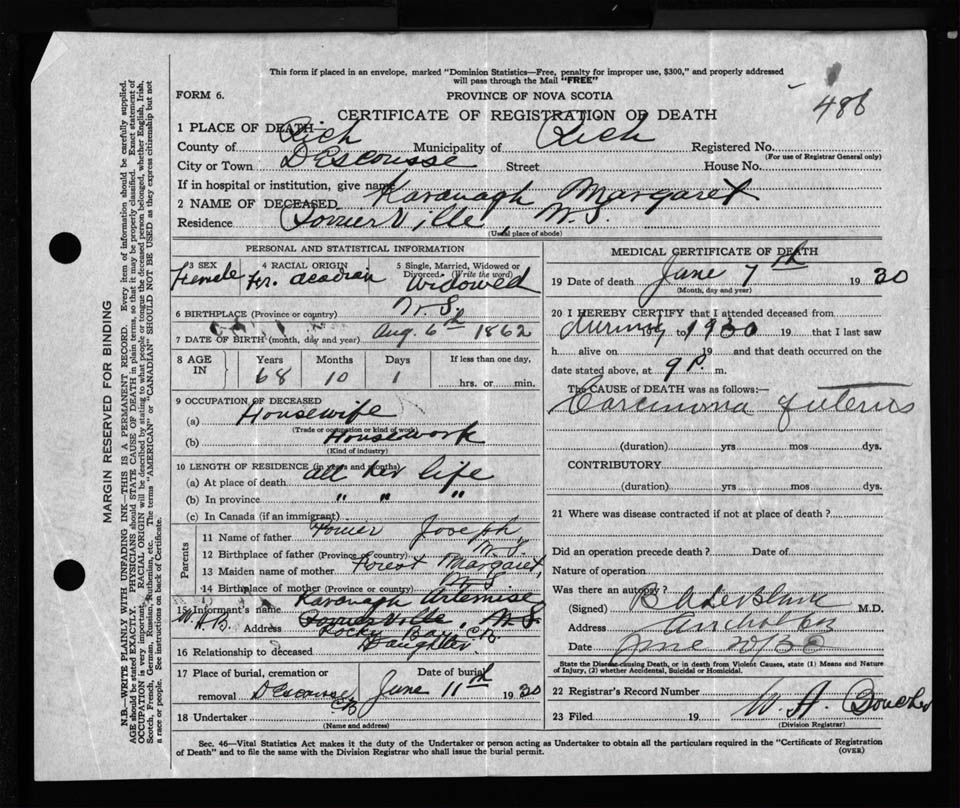 This form if placed in an envelope, marked "Dominion Statistics—Free, penalty for improper use, $300," and properly addressed
will pass through the Mail "FREE"
FORM 6.
PROVINCE OF NOVA SCOTIA
486
CERTIFICATE OF REGISTRATION OF DEATH
1 PLACE OF DEATH—
County of Rich Municipality of Rich Registered No.
(For use of Registrar General only)
City or Town D'Escousse Street House No.
If in hospital or institution, give name
2 NAME OF DECEASED Kavanagh Margaret
Residence Poirierville, N.S.
(Usual place of abode)
PERSONAL AND STATISTICAL INFORMATION
3 SEX 4 RACIAL ORIGIN 5 Single, Married, Widowed or
Divorced (Write the word)
Female Fr. Acadian Widowed
6 BIRTHPLACE (Province or country) N.S.
7 DATE OF BIRTH (month, day and year) Aug. 6th 1862
8 AGE IN Years Months Days If less than one day,
68 10 1 hrs. or min.
9 OCCUPATION OF DECEASED
(a) Housewife
(Trade or occupation or kind of work)
(b) Housework
(Kind of industry)
10 LENGTH OF RESIDENCE (in years and months)
(a) At place of death all her life
(b) In province " " "
(c) In Canada (if an immigrant)
Parents
11 Name of father Poirier Joseph
12 Birthplace of father (Province or country) N.S.
13 Maiden name of mother Forest Margaret,
14 Birthplace of mother (Province or country) N.S
15 Informant's name Kavanagh Artemise
W.A.B. Address Poirierville, N.S.
Rocky Bay C.B.
16 Relationship to deceased Daughter
17 Place of burial, cremation or Date of burial
removal D'Escousse C.B June 11th 1930
18 Undertaker
(Name and address)
MEDICAL CERTIFICATE OF DEATH
19 Date of death June 7th 1930
(Month, day and year)
20 I HEREBY CERTIFY that I attended deceased from
to 1930 19 that I last saw
h alive on 19 and that death occurred on the
date stated above, at 9 P. m.
The CAUSE of DEATH was as follows:—
Carcinoma of uterus
(duration) yrs mos dys.
CONTRIBUTORY
(duration) yrs. mos. dys.
21 Where was disease contracted if not at place of death?
Did an operation precede death? Date of
Nature of operation
Was there an autopsy?
(Signed) B A LeBlanc M.D.
Address Arichat
Date June
State the Disease causing Death, or in death from Violent Causes, state (1) Means and Nature
of Injury, (2) whether Accidental, Suicidal or Homicidal.
22 Registrar's Record Number
23 Filed 19 W. A. Boucher
(Division Registrar)
Sec. 46—Vital Statistics Act makes it the duty of the Undertaker or person acting as Undertaker to obtain all the particulars required in the "Certificate of Registration
of Death" and to file the same with the Division Registrar who shall issue the burial permit.
(OVER)
MARGIN RESERVED FOR BINDING
N.B.—WRITE PLAINLY WITH UNFADING INK—THIS IS A PERMANENT RECORD. Every item of information should be carefully supplied.
AGE should be stated EXACTLY. PHYSICIANS should STATE CAUSE OF DEATH in plain terms, so that it may be properly classified. Exact statement of
OCCUPATION is very important. RACIAL ORIGIN will be described by stating to what people or tongue the deceased person belonged, whether English, Irish,
Scotch, French, German, Russian, Ruthenian, etc. The terms "AMERICAN" or "CANADIAN" SHOULD NOT BE USED as they express citizenship but not
a race or people. See instructions on back of Certificate.